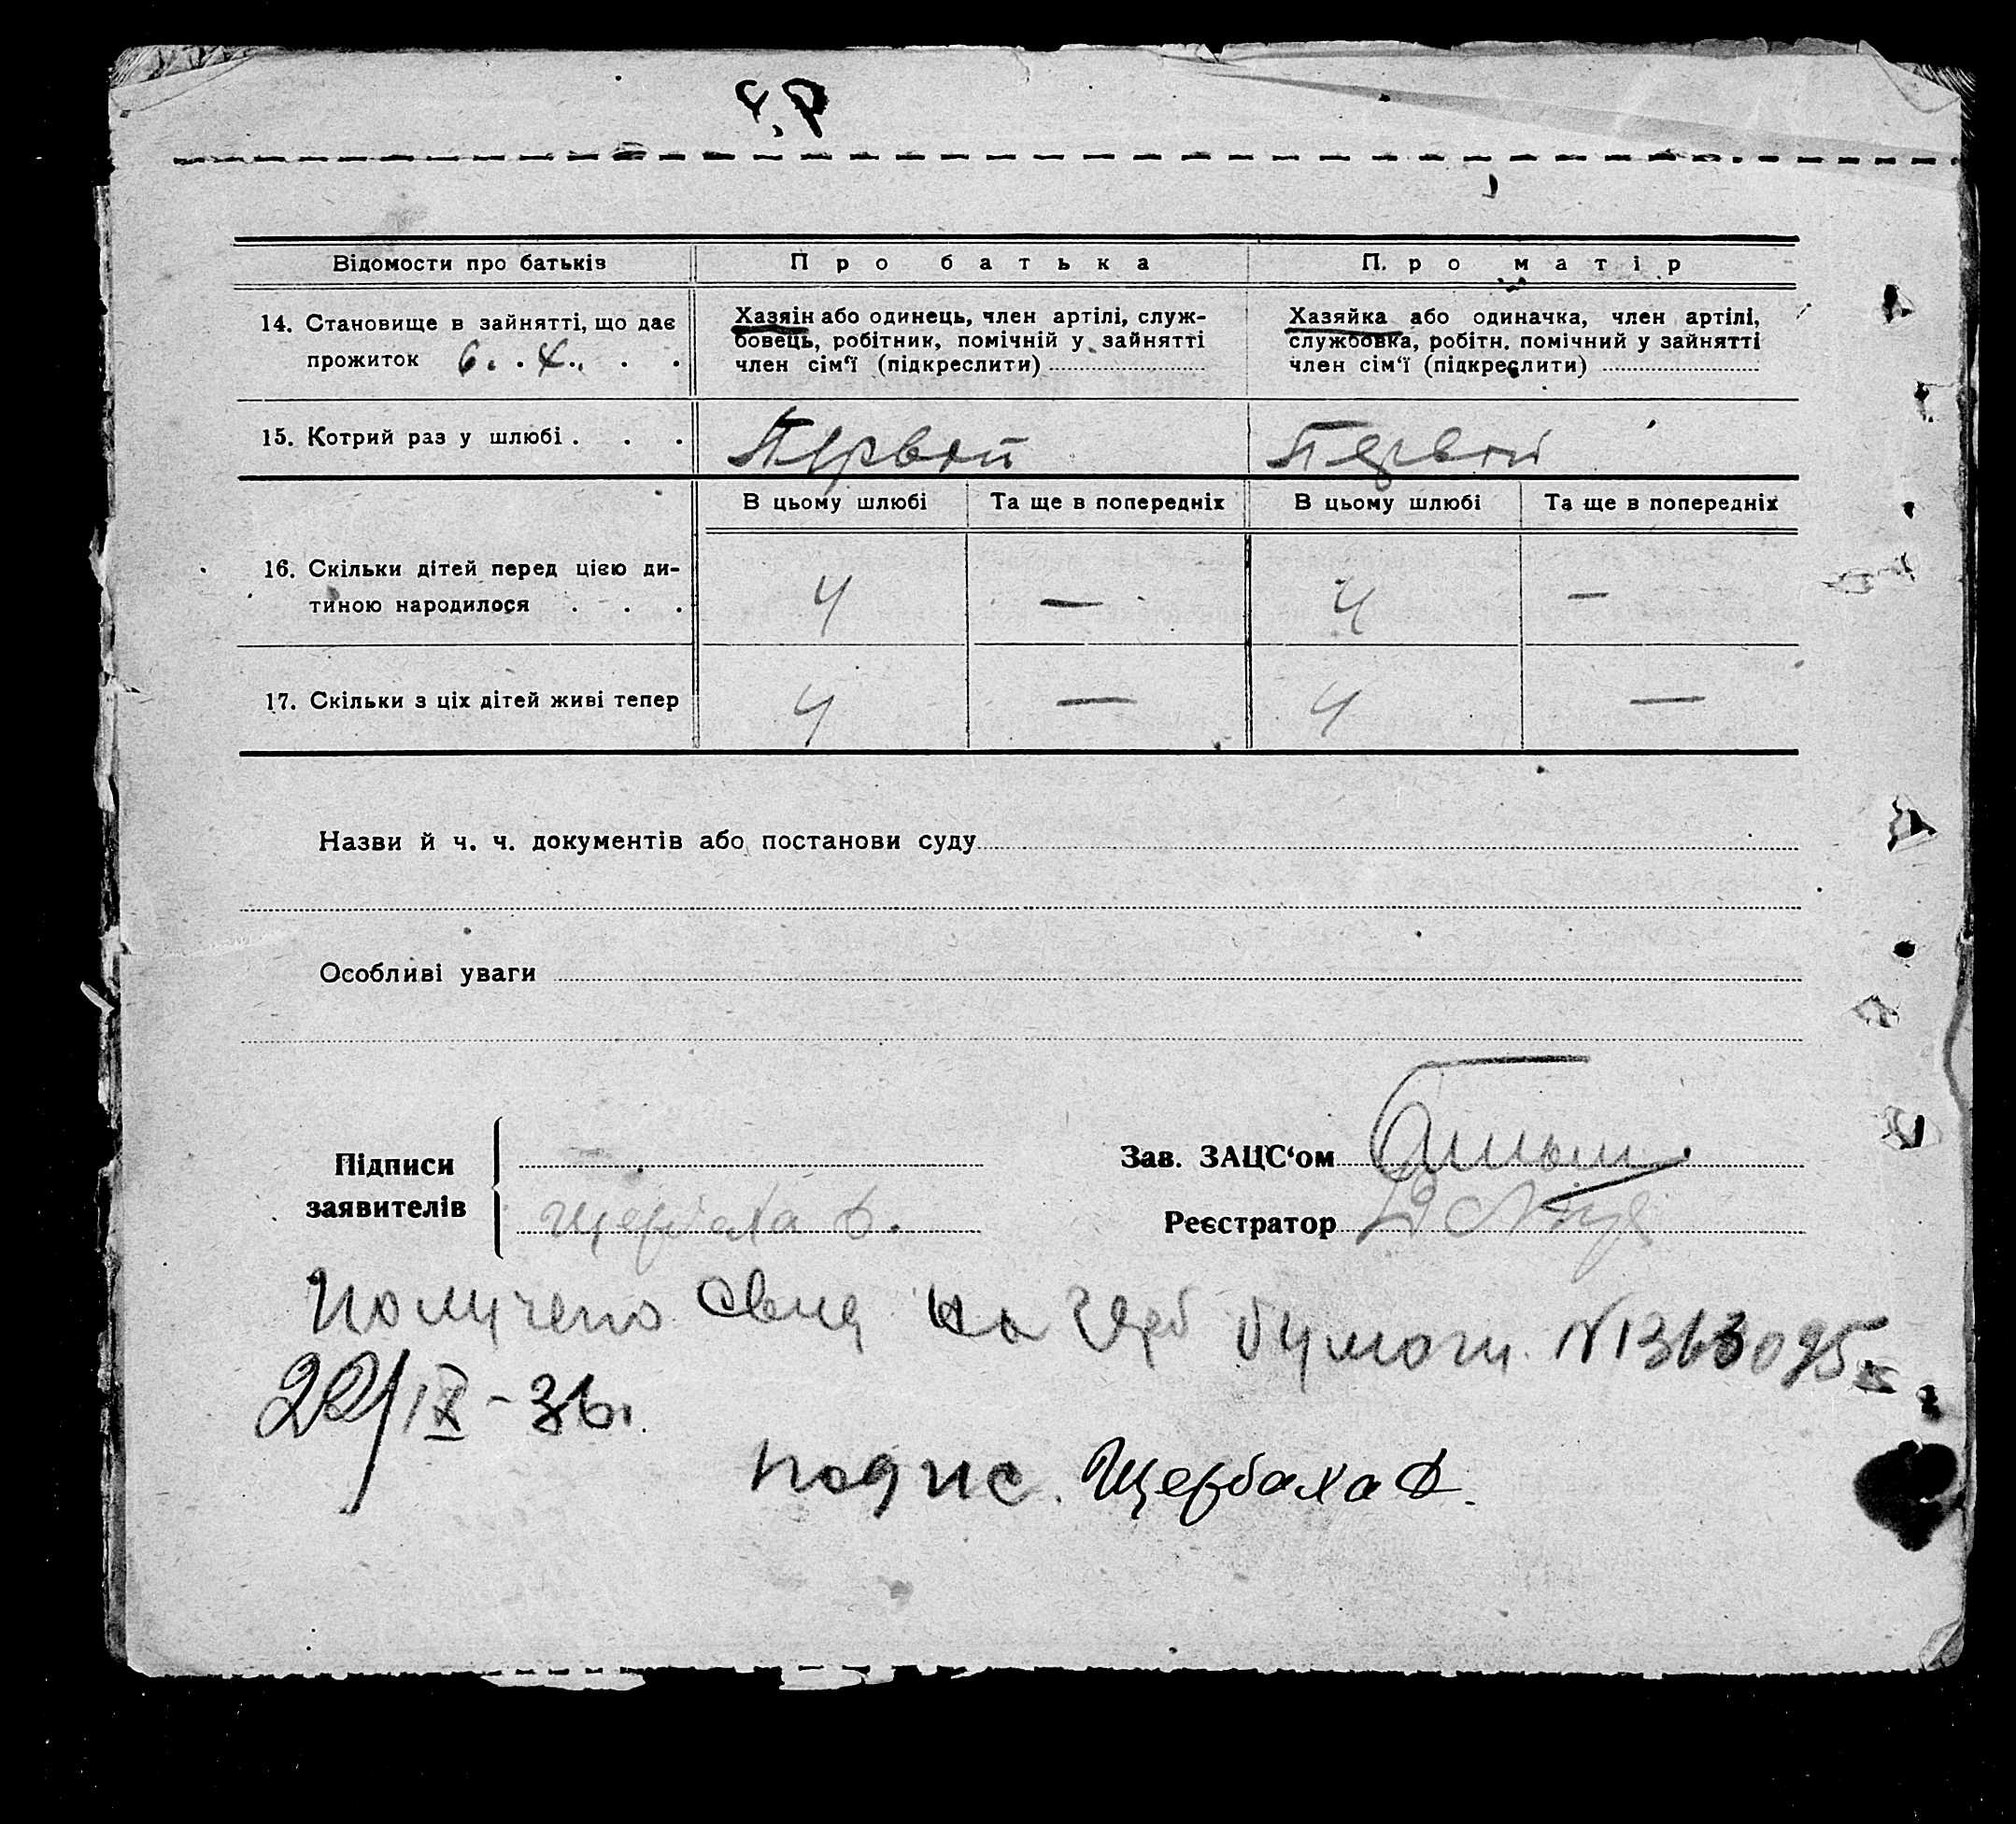 Відомости про батьків
Про батька
П. ро матір
14. Становище в зайнятті, що дає
прожиток
Хазяін або одинець, член артілі, служ-
бовець, робітник, помічній у зайнятті
член сім'ї (підкреслити)
Хазяйка або одиначка, член артілі,
службовка, робітн. помічний у зайнятті
член сім'ї (підкреслити)
15. Котрий раз у шлюбі . . .
Первой
Первой
В цьому шлюбі
Та ще в попередніх
В цьому шлюбі
Та ще в попередніх
16. Скільки дітей перед цією ди-
тиною народилося . . .
4 — 4 —
17. Скільки з ціх дітей живі тепер
4 — 4 —
Назви й ч. ч. документів або постанови суду
Особливі уваги
Підписи
заявителів
Щербаха
Зав. ЗАЦС'ом
Реєстратор
Получено на герб бумаги N1363095
22/IX-36.
подпис. Щербаха Ф.